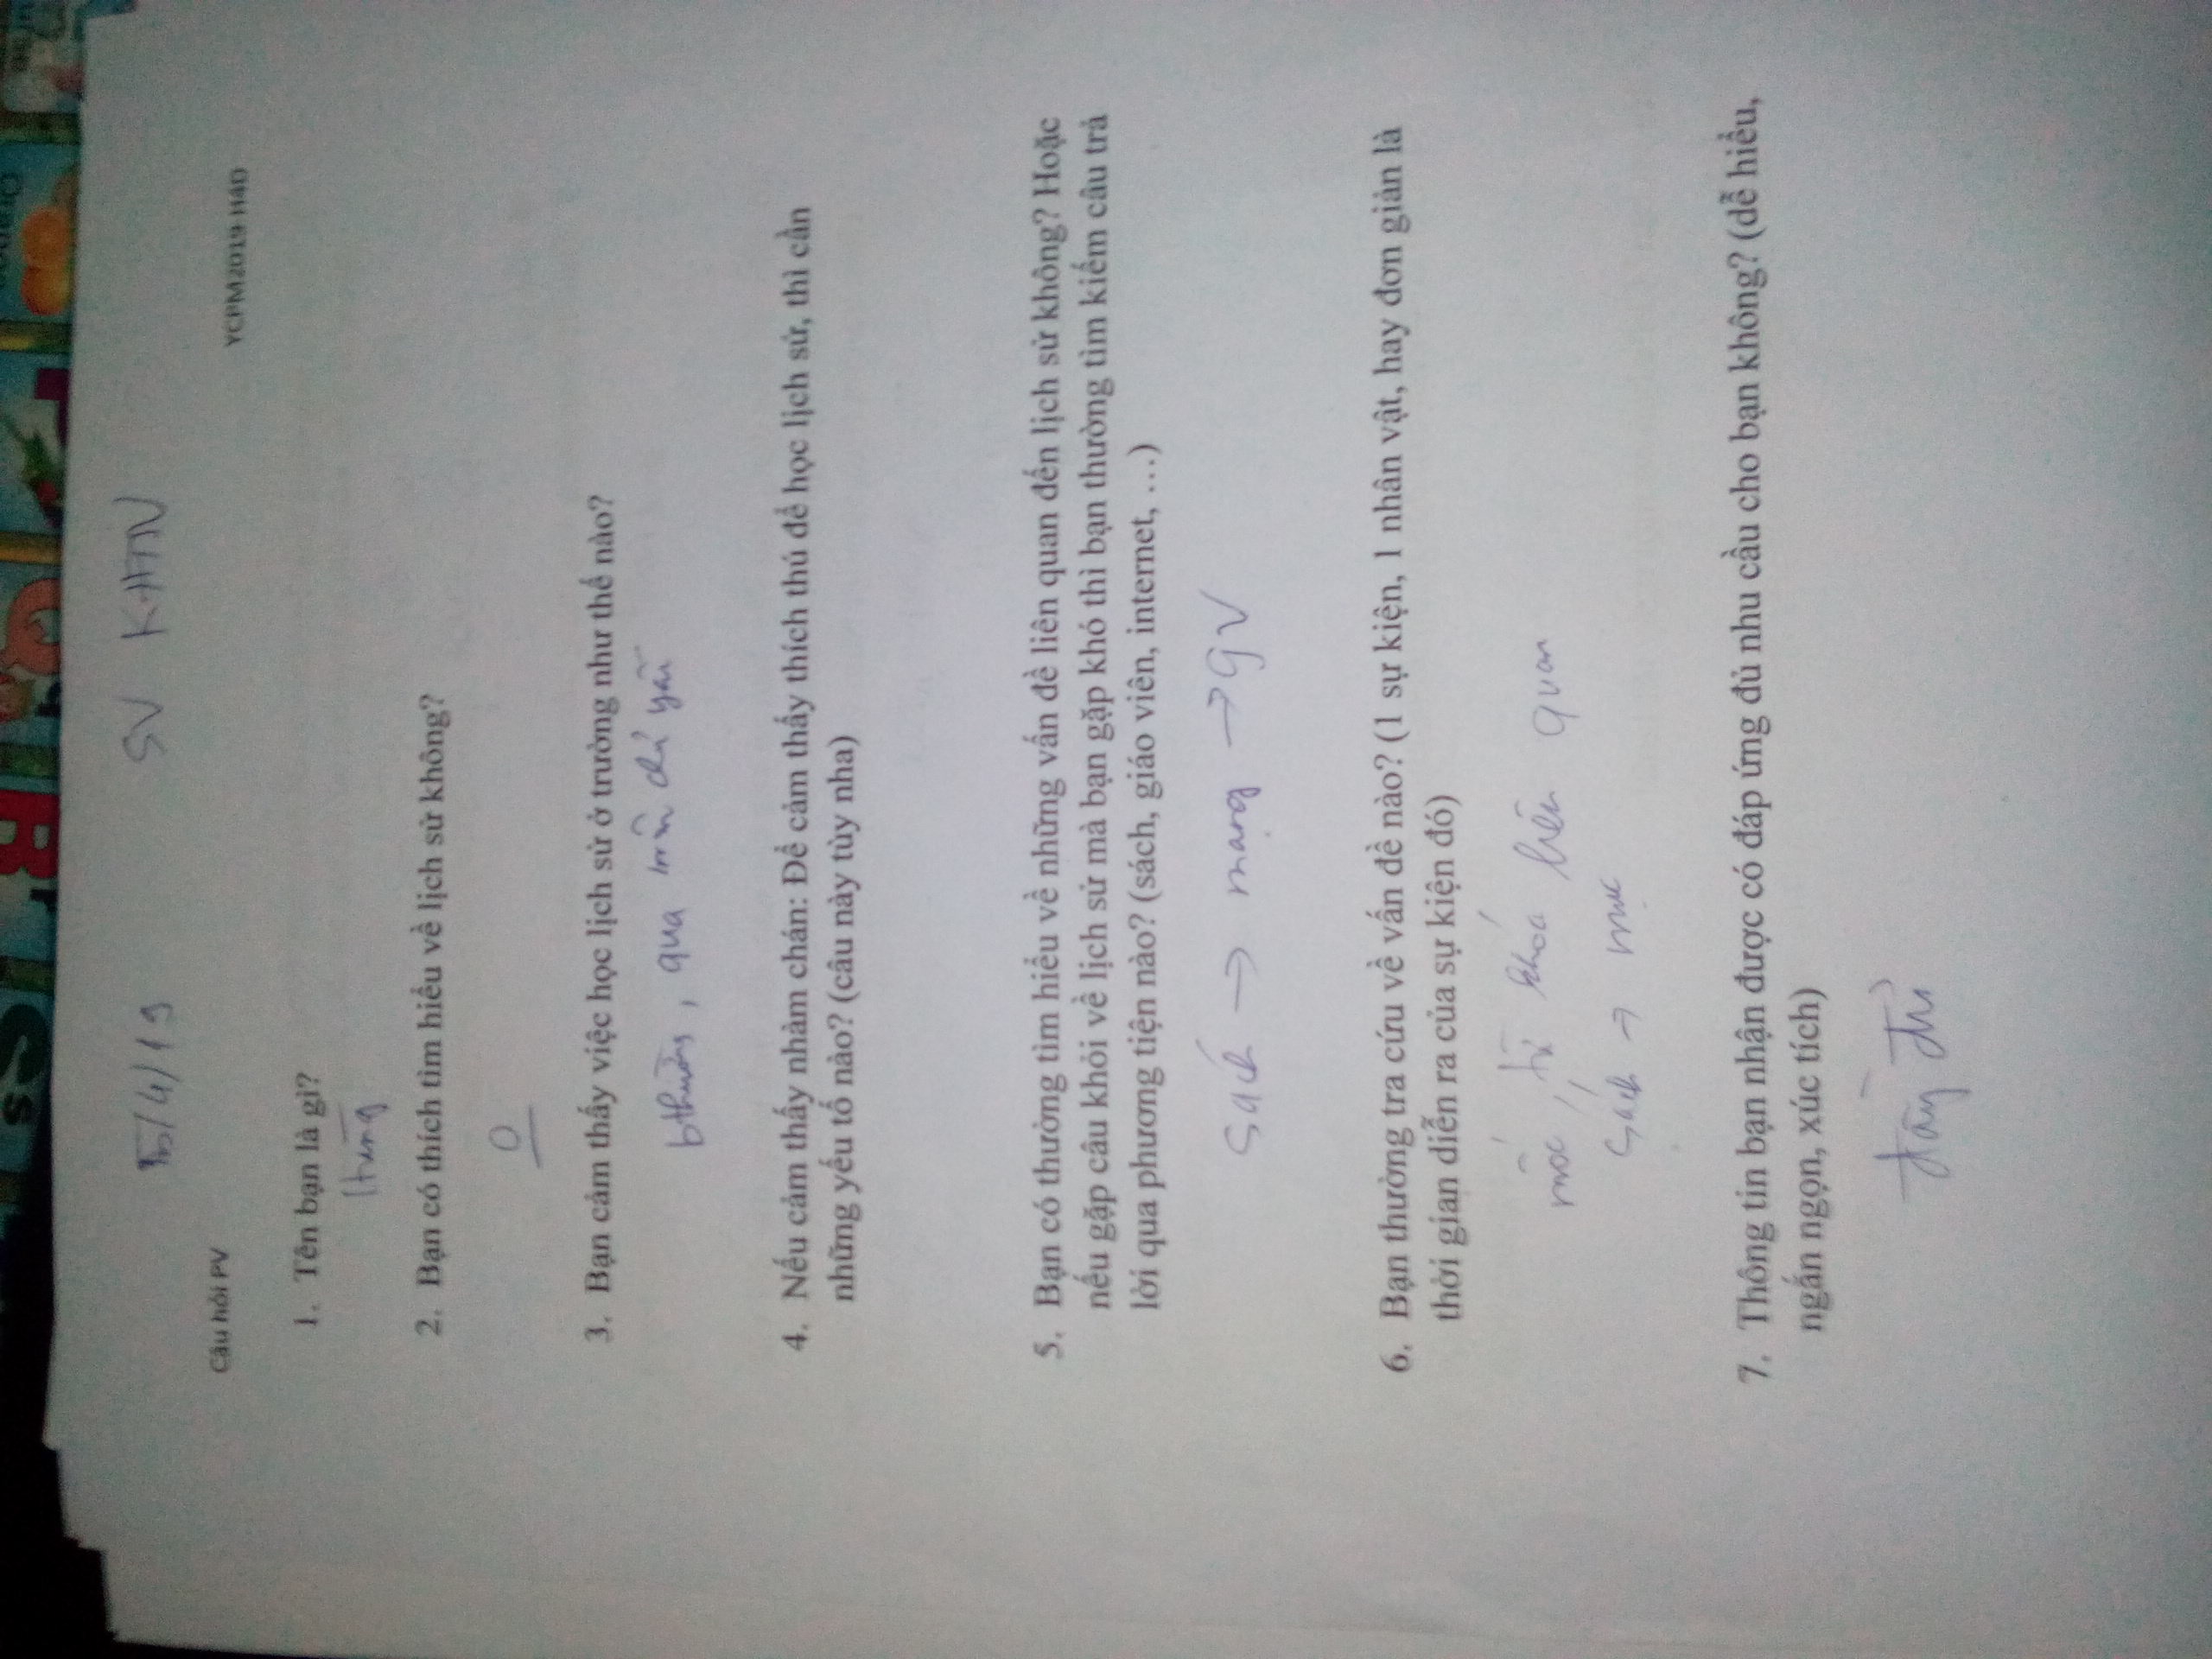 15/4/19 SV KHTN
Câu hỏi PV YCPM2019-HAD
1. Tên bạn là gì?
Hưng
2. Bạn có thích tìm hiểu về lịch sử không?
0
3. Bạn cảm thấy việc học lịch sử ở trường như thế nào?
bthường, qua môn chủ yếu
4. Nếu cảm thấy nhàm chán: Để cảm thấy thích thú để học lịch sử, thì cần
những yếu tố nào? (câu này tùy nha)
5. Bạn có thường tìm hiểu về những vấn đề liên quan đến lịch sử không? Hoặc
nếu gặp câu khỏi về lịch sử mà bạn gặp khó thì bạn thường tìm kiếm câu trả
lời qua phương tiện nào? (sách, giáo viên, internet, …)
Sách → mạng → GV
6. Bạn thường tra cứu về vấn đề nào? (1 sự kiện, 1 nhân vật, hay đơn giản là
thời gian diễn ra của sự kiện đó)
mốc, từ khóa liên quan
Sách → mục
7. Thông tin bạn nhận được có đáp ứng đủ nhu cầu cho bạn không? (dễ hiểu,
ngắn ngọn, xúc tích)
đầy đủ